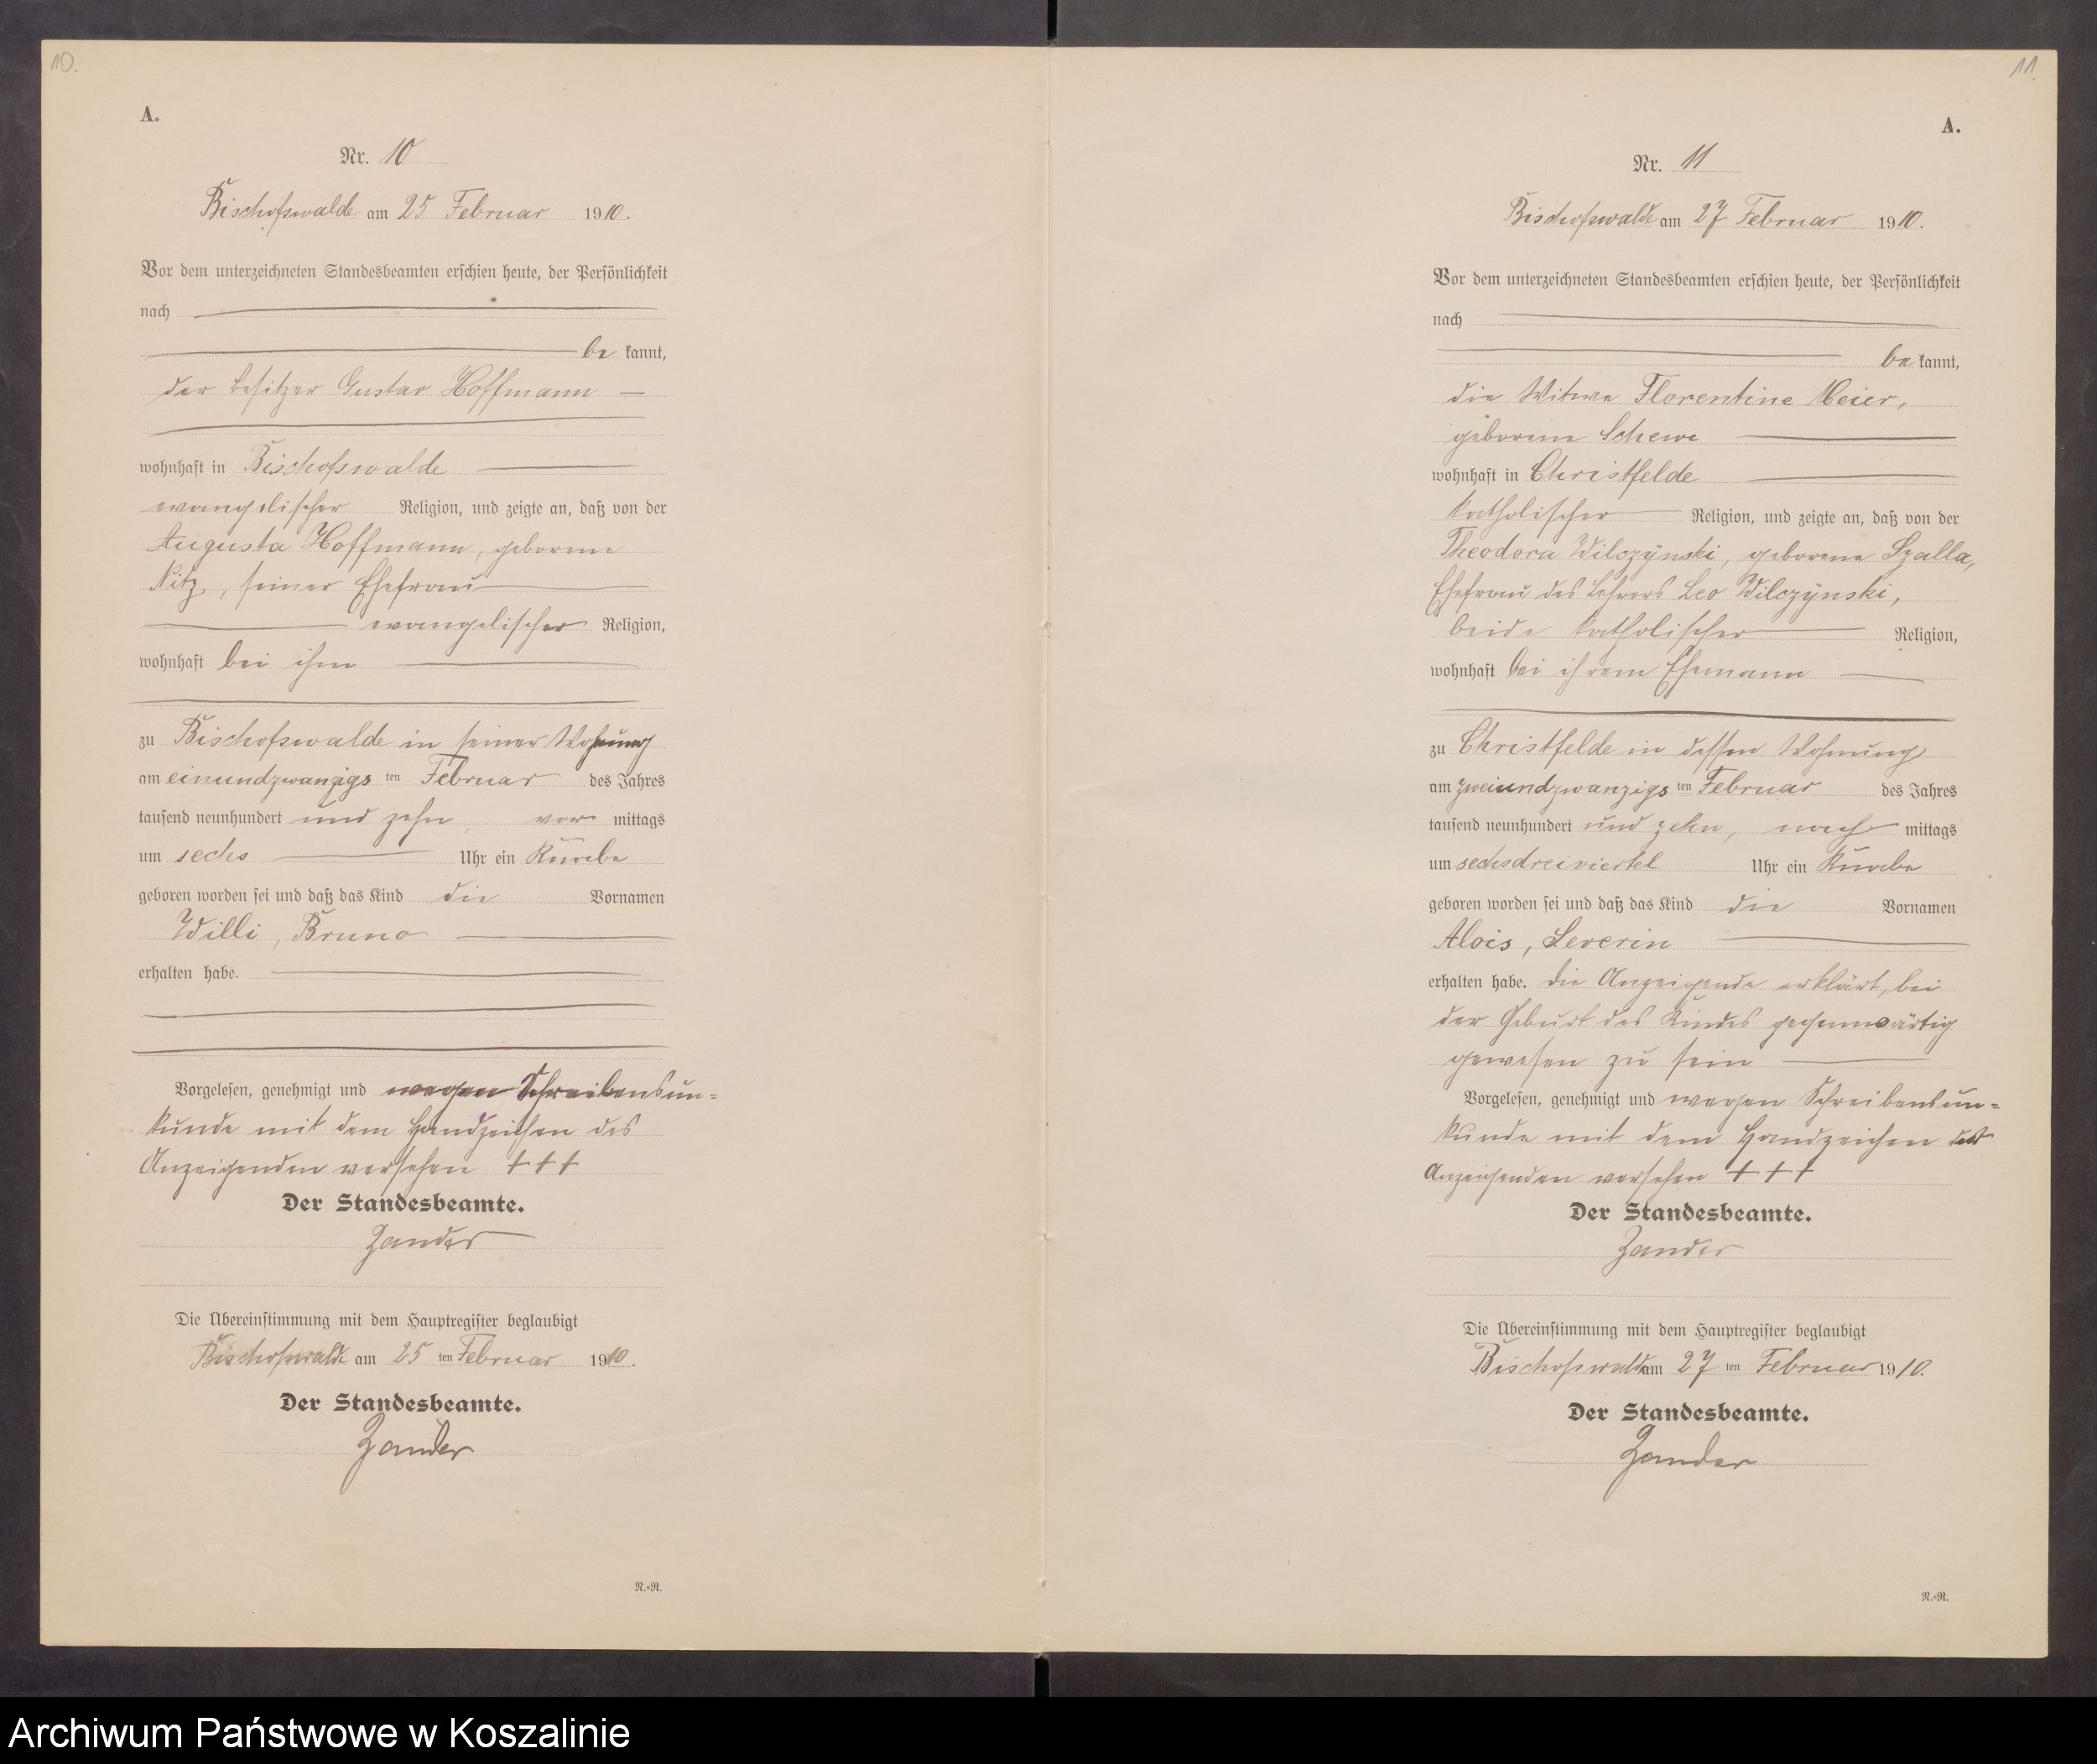 10.
A.
Nr. 10
Bischofswalde am 25 Februar 1910.
Vor dem unterzeichneten Standesbeamten erschien heute, der Persönlichkeit
nach
be kannt,
der Besitzer Gustav Hoffmann
wohnhaft in Bischofswalde
evangelischer Religion, und zeigte an, daß von der
Augusta Hoffmann, geborene
Nitz, seiner Ehefrau
evangelischer Religion,
wohnhaft bei ihm
zu Bischofswalde in seiner Wohnung
am einundzwanzigs ten Februar des Jahres
tausend neunhundert und zehn, vor mittags
um sechs Uhr ein Knabe
geboren worden sei und daß das Kind die Vornamen
Willi, Bruno
erhalten habe.
Vorgelesen, genehmigt und wegen Schreibensun-
kunde mit dem Handzeichen des
Anzeigenden versehen +++
Der Standesbeamte.
Zander
Die Übereinstimmung mit dem Hauptregister beglaubigt
Bischofswalde am 25 ten Februar 1910.
Der Standesbeamte.
Zander
N.-R.
11.
A.
Nr. 11
Bischofswalde am 27 Februar 1910.
Vor dem unterzeichneten Standesbeamten erschien heute, der Persönlichkeit
nach
be kannt,
die Witwe Florentine Meier,
geborene Schewe
wohnhaft in Christfelde
katholischer Religion, und zeigte an, daß von der
Theodora Wilczynski, geborene Szalla,
Ehefrau des Lehrers Leo Wilczynski,
beide katholischer Religion,
wohnhaft bei ihrem Ehemann
zu Christfelde in dessen Wohnung
am zweiundzwanzigs ten Februar des Jahres
tausend neunhundert und zehn, nach mittags
um sechsdreiviertel Uhr ein Knabe
geboren worden sei und daß das Kind die Vornamen
Alois, Severin
erhalten habe. Die Anzeigende erklärt, bei
der Geburt des Kindes gegenwärtig
gewesen zu sein
Vorgelesen, genehmigt und wegen Schreibensun-
kunde mit dem Handzeichen
Anzeigenden versehen +++
Der Standesbeamte.
Zander
Die Übereinstimmung mit dem Hauptregister beglaubigt
Bischofswalde am 27 ten Februar 1910.
Der Standesbeamte.
Zander
N.-R.
Archiwum Państwowe w Koszalinie